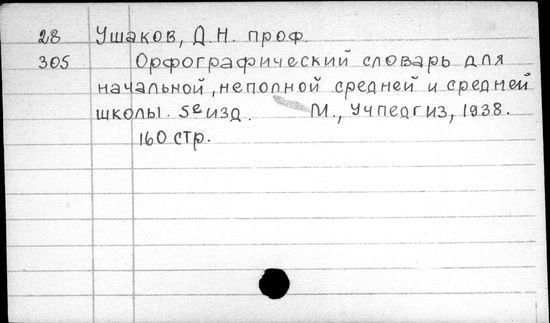 28 Ушаков, Д.Н. проф.
305 Орфографический словарь для
начальной, неполной средней и средней
школы. 5е изд. М., Учпедгиз, 1938.
160 стр.